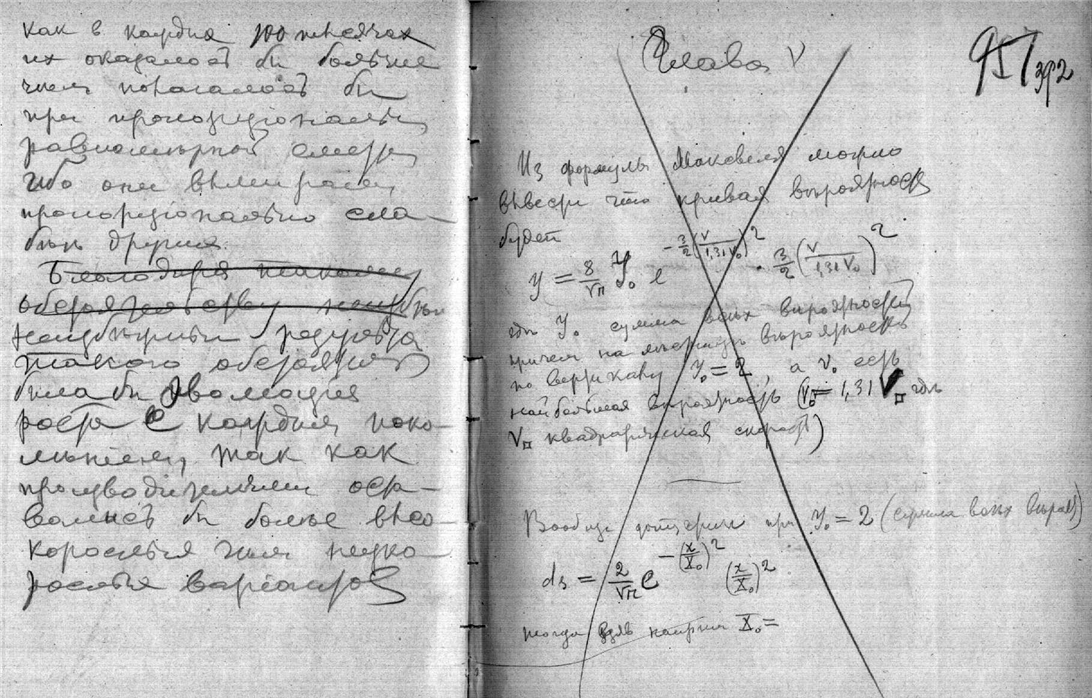 как в каждыя 100 тысячах
их оказалось бы больше
чем полагалось бы
при пропорціонально
равномѣрной смерти,
ибо они вымирали
пропорціонально сла-
бѣе других.
Благодаря такому
обстоятельству
неизбѣжным результа
такого обстоятельст
была бы эволюція
роста с каждым поко-
лѣнием, так как
производителями оста-
вались бы болѣе высо-
корослые чѣм низко-
рослые варіанты
Глава V
957
Из формулы Максвеля можно
вывести что кривая вѣроятност
будет
y = 8/√π Y₀ e^(-3/2 (v/1,31 V₀)²) · 3/2 (v/1,31 V₀)²
гдѣ Y₀ сумма всѣх вѣроятностей
причем на вѣроятность
по вертикалу Y₀ = 2, а v₀ есть
наибольшая вѣроятность (v₀ = 1,31 V□ гдѣ
V□ квадратическая скорость)
Вообще допустим при Y₀ = 2 (сумма всѣх вѣроят)
ds = 2/√π e^(-(x/X₀)²) (x/X₀)²
тогда X₀ =